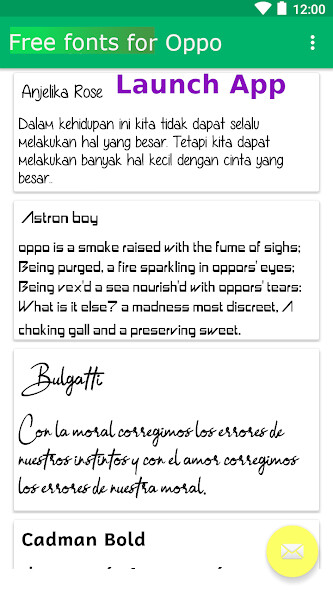 12:00
Free fonts for Oppo
Launch App
Anjelika Rose
Dalam kehidupan ini kita tidak dapat selalu
melakukan hal yang besar. Tetapi kita dapat
melakukan banyak hal kecil dengan cinta yang
besar..
Astron boy
oppo is a smoke raised with the fume of sighs;
Being purged, a fire sparkling in oppors' eyes;
Being vex'd a sea nourish'd with oppors' tears:
What is it else? a madness most discreet, A
choking gall and a preserving sweet.
Bulgatti
Con la moral corregimos los errores de
nuestros instintos y con el amor corregimos
los errores de nuestra moral.
Cadman Bold